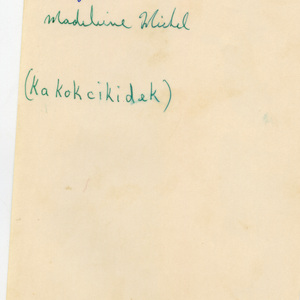 Madeleine Michel
(Kakokcikidek)